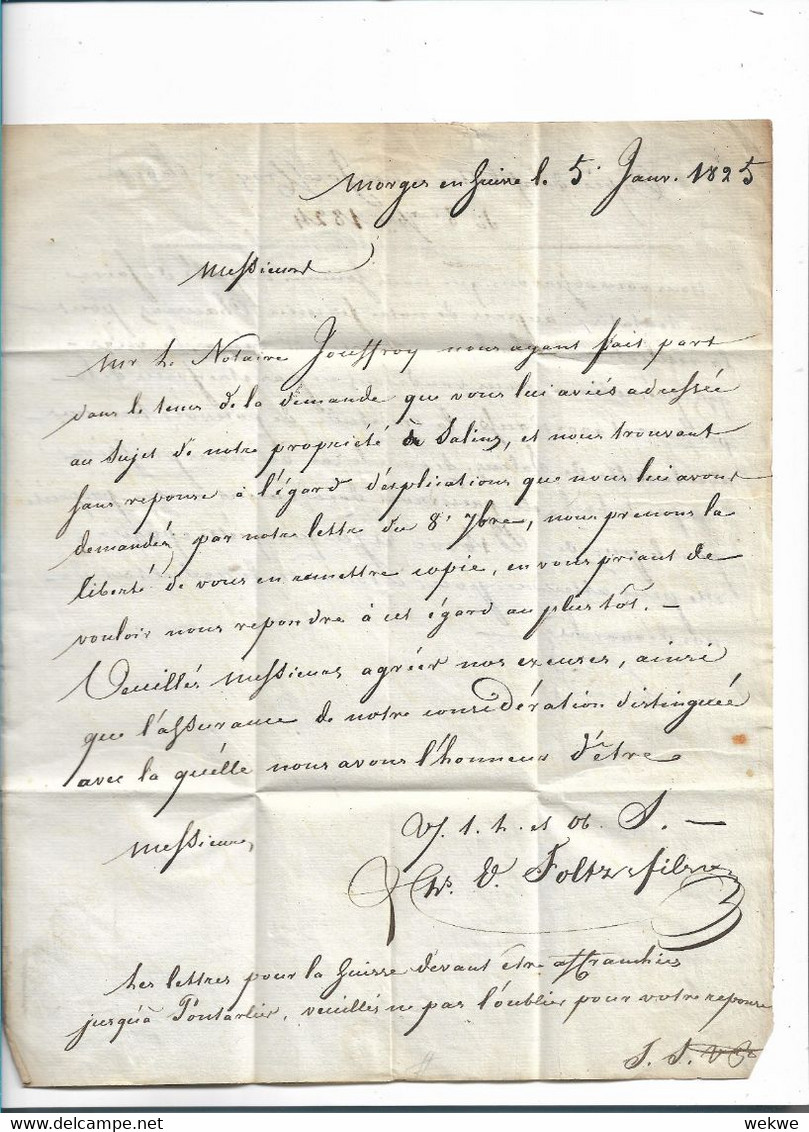 Morges en Suisse le 5. Janv. 1825
Messieurs
Mr Le Notaire Jouffroy nous ayant fait part
dans le tems de la demande que vous lui aviés adressée
au sujet de notre propriété de Salins, et nous trouvant
sans reponse à l'égard d'esplications que nous lui avons
demandés par notre lettre du 8. 7bre, nous prenons la
liberté de vous en remettre copie, en vous priant de
vouloir nous repondre à cet égard au plus tôt. —
Veuillés Messieurs agréer nos excuses, ainsi
que l'assurance de notre considération distinguée
avec la quélle nous avons l'honneur d'être
Messieurs
V. t. h. et ob. S. —
Foltz fils
Les lettres pour la Suisse devant être affranchies
jusqu'à Pontarlier, veuillés ne pas l'oublier pour votre reponse
wekwe